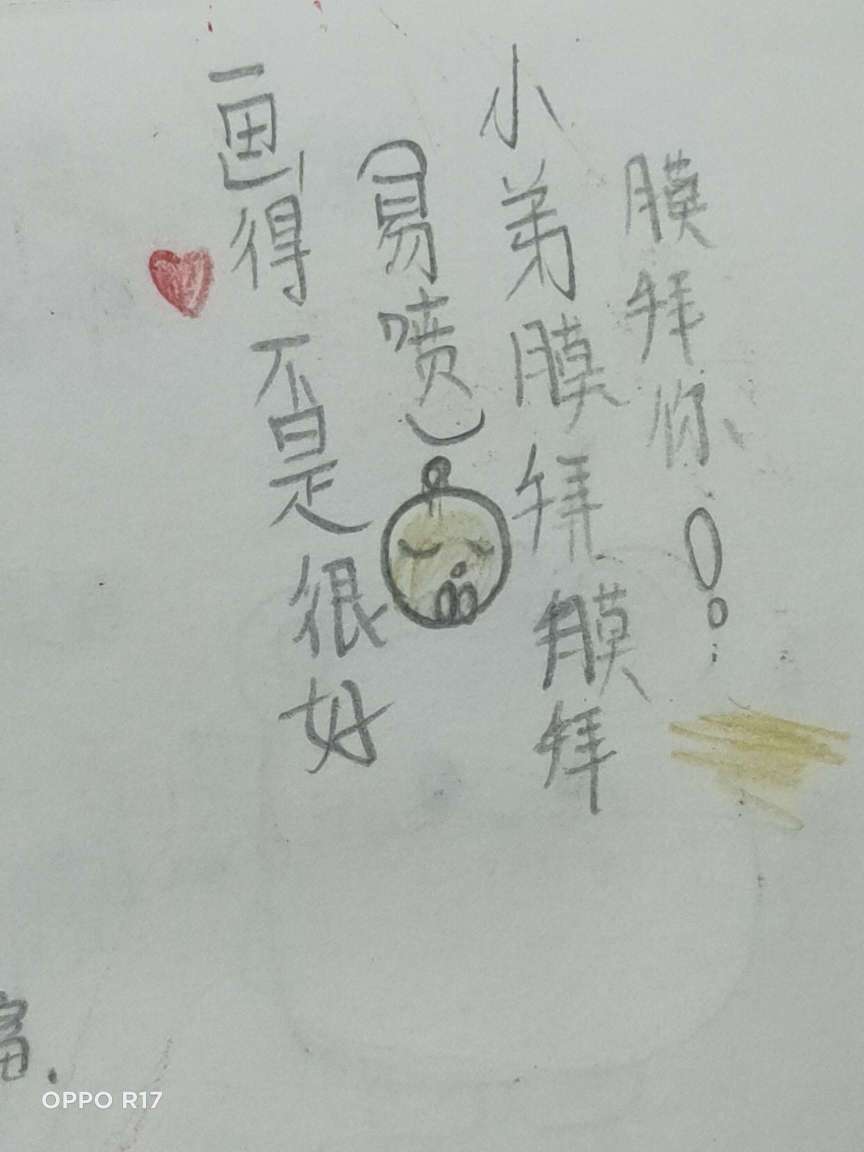 画得不是很好
(易喷)
小弟膜拜膜拜
膜拜你!
OPPO R17